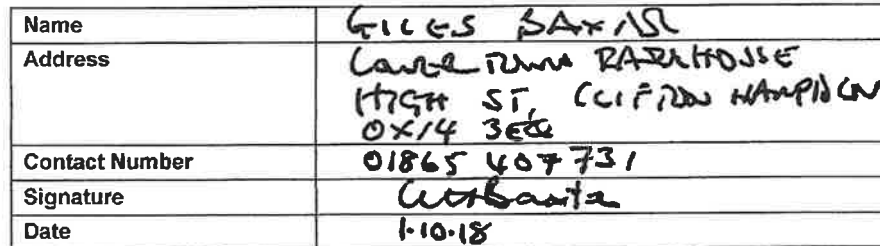 Name GILES BAXTER
Address LOWER TOWN FARMHOUSE
HIGH ST, CLIFTON HAMPDEN
OX14 3E
Contact Number 01865 407731
Signature
Date 1.10.18